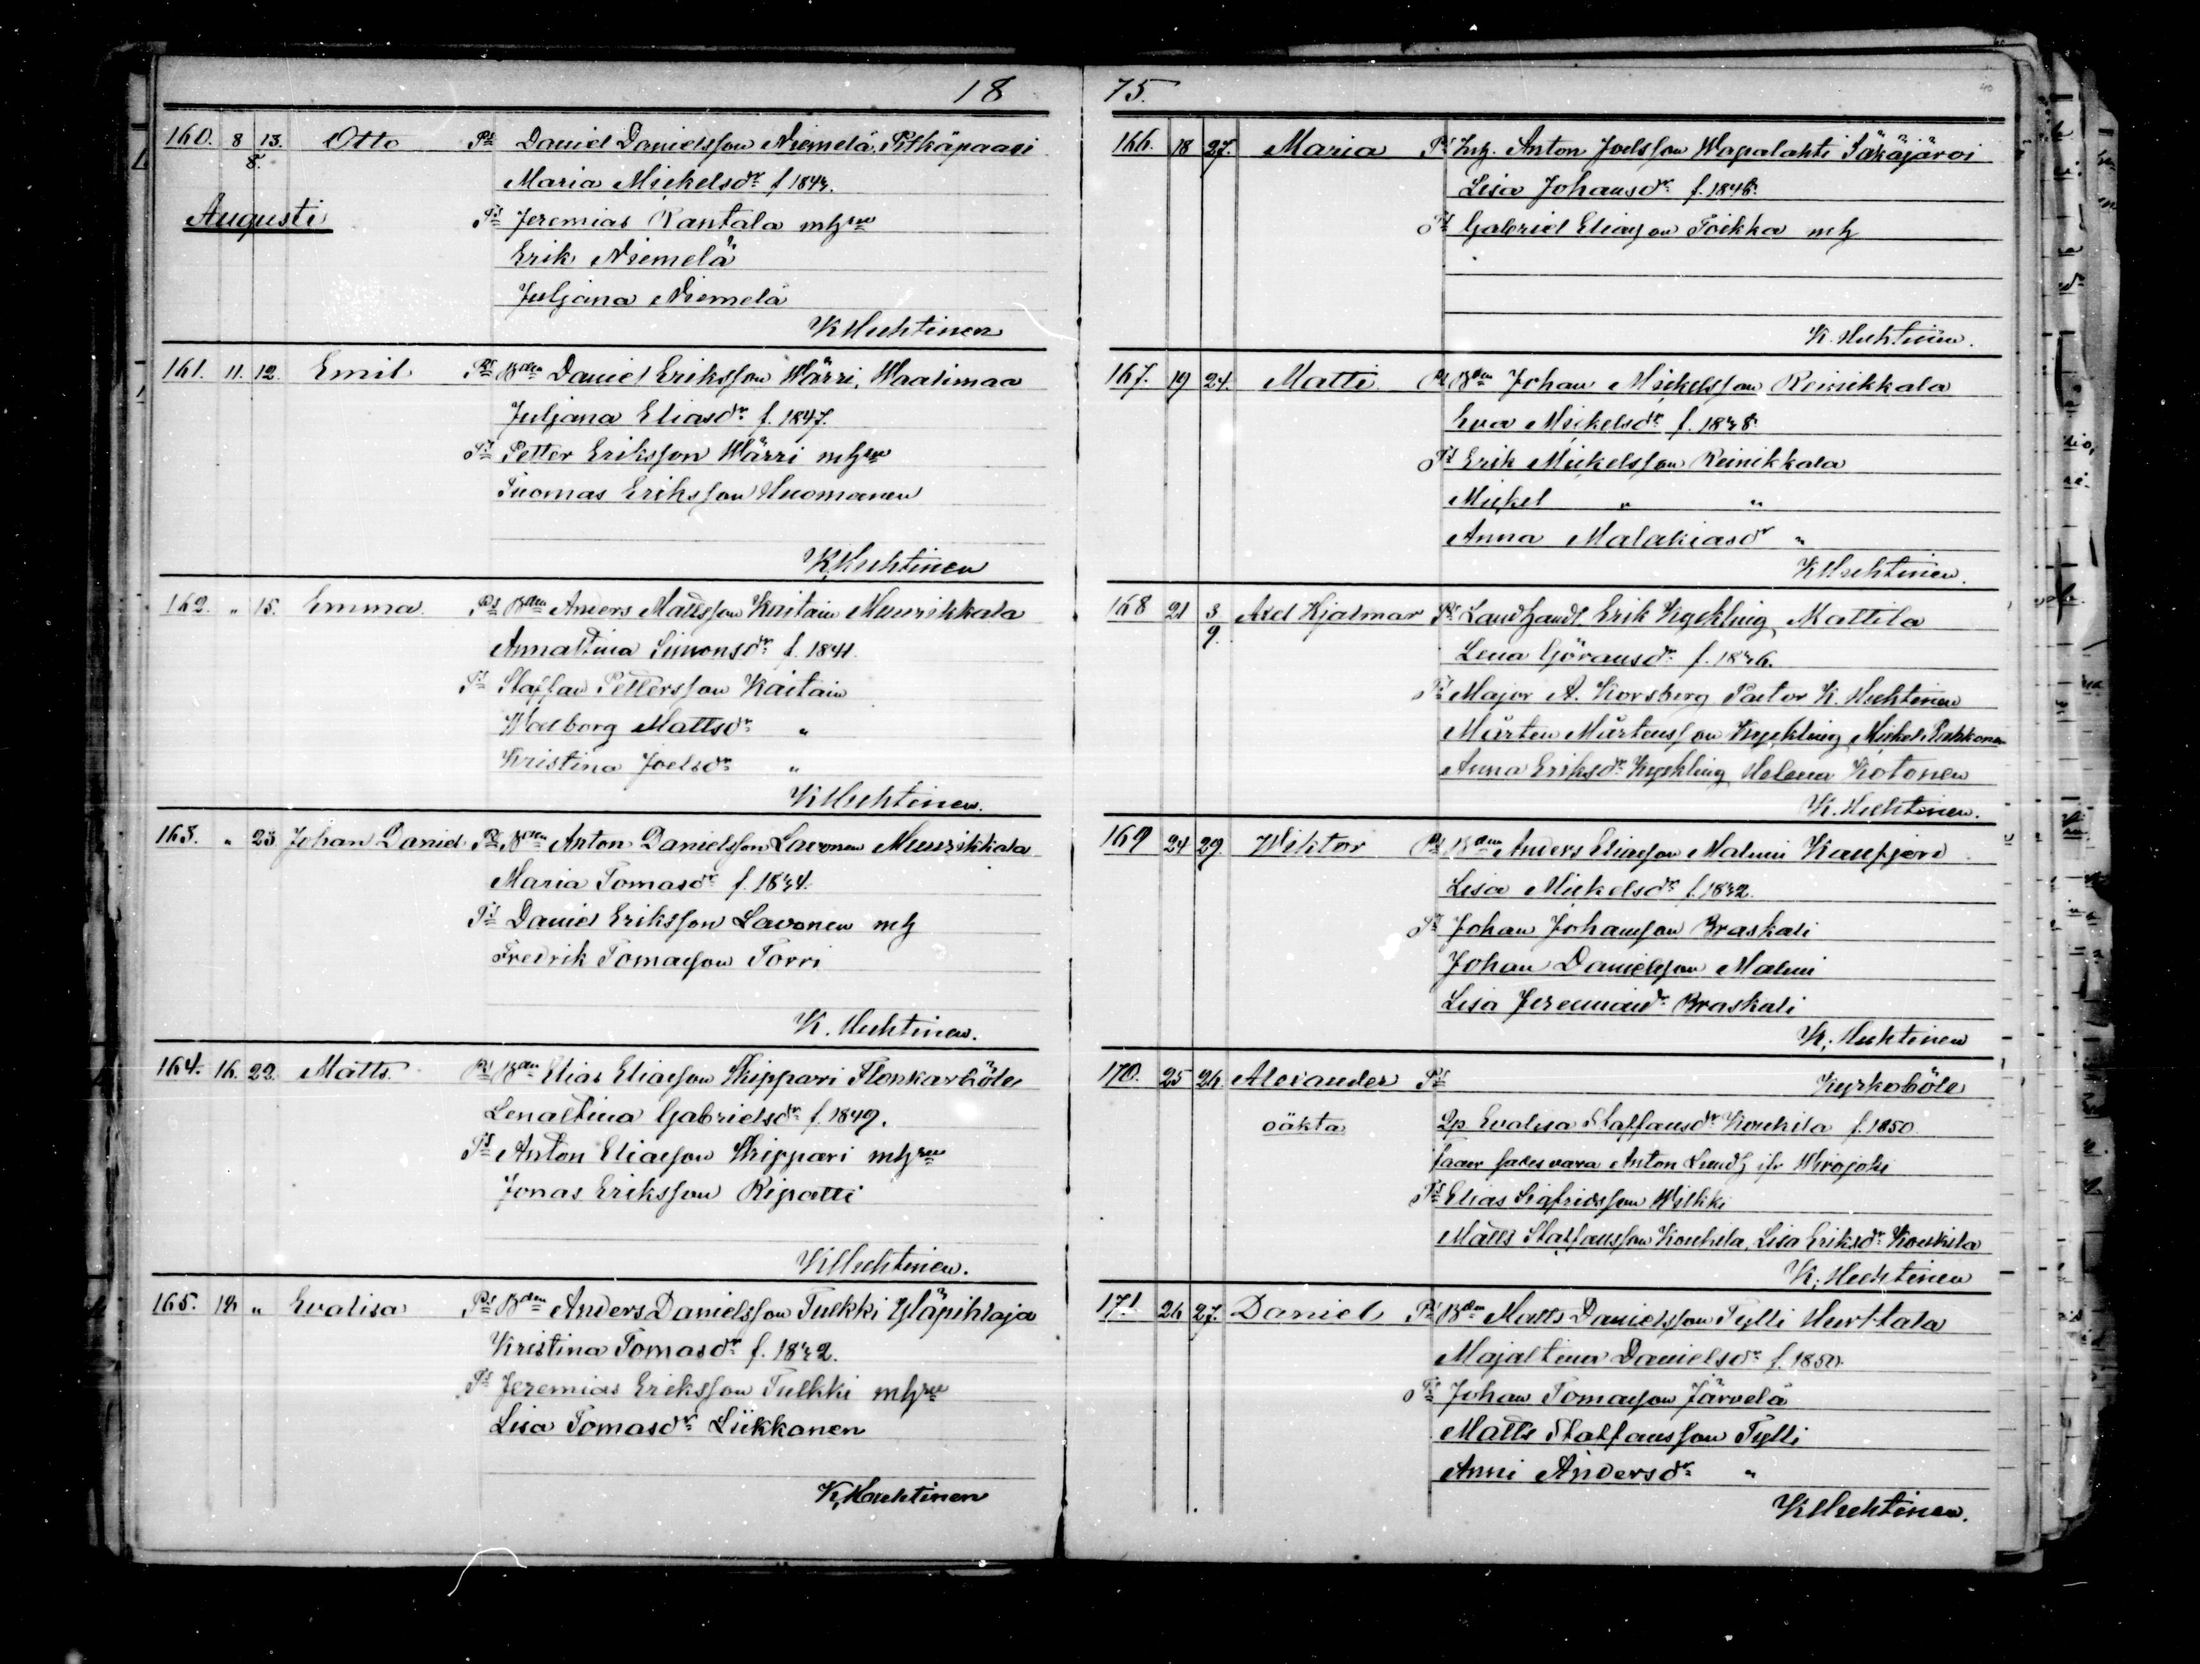 18
160. 8 13. Otto Ps Daniel Danielsson Niemelä, Pitkäpaasi
8.
Maria Mickelsdr f 184
Augusti
Ts Jeremias Rantala mh
Erik Niemelä
Juljana Niemelä
K Huhtinen
161. 11. 12. Emil Ps Bdn Daniel Eriksson Wärri, Waalimaa
Juljana Eliasdr f. 1847.
Ts Petter Eriksson Wärri mh
Tuomas Eriksson Huomanen
K. Huhtinen
162. " 15. Emma. Ps Bdn Anders Mattsson Kaitain Muurikkala
Annastina Simonsdr f. 1841.
Ts Staffan Pettersson Kaitain
Walborg Mattsdr "
Kristina Joelsdr "
K Huhtinen.
163. " 23 Johan Daniel Ps Bdn Anton Danielsson Lavonen Muurikkala
Maria Tomasdr f. 1844.
Ts Daniel Eriksson Lavonen mh
Fredrik Tomasson Torri
K. Huhtinen.
164. 16. 22. Matts. Ps Bdn Elias Eliasson Skippari
Lenastina Gabrielsdr f. 1849.
Ts Anton Eliasson Skippari mh
Jonas Eriksson Ripatti
K Huhtinen.
165. " Evalisa Ps Bdn Anders Danielsson Tulkki Yläpihlaja
Kristina Tomasdr f. 1842.
Ts Jeremias Eriksson Tulkki mh
Lisa Tomasdr Liikkanen
K. Huhtinen
75.
166. 18 27. Maria Ps Inh. Anton Joelsson Wapalahti Säkäjärvi
Lisa Johansdr f. 1846.
Ts Gabriel Eliasson Toikka mh
K. Huhtinen.
167. 19 24. Matti Ps Bdn Johan Mickelsson Reinikkala
Eva Mickelsdr f. 1848.
Ts Erik Mickelsson Reinikkala
Mickel " "
Anna Malakiasdr "
K Huhtinen.
168 21 3/9. Axel Hjalmar Ps Landhandl. Erik Kyckling, Mattila
Lena Göransdr f. 1846.
Ts Major A. Korsberg Pastor K. Huhtinen
Mårten Mårtensson Kyckling, Mickel Pukkonen
Anna Eriksdr Kyckling Helena Kotonen
K. Huhtinen.
169 24 29. Wiktor Ps Bdn Anders Eliasson Malmi
Lisa Mickelsdr f. 1842.
Ts Johan Johansson Braskali
Johan Danielsson Malmi
Lisa Jeremiasdr Braskali
K. Huhtinen
170. 25 26. Alexander Ps Kyrkoböle
oäkta Qp Evalisa Staffansdr Kouhila f. 1850.
vara Anton fr Wirojoki
Ts Elias Sigfridsson Wilkki
Matts Staffansson Kouhila, Lisa Eriksdr Kouhila
K. Huhtinen
171 26 27. Daniel Ps Bdn Matts Danielsson Tylli Hurttala
Majastina Danielsdr f. 1850.
Ts Johan Tomasson Järvelä
Matts Staffansson Tylli
Anni Andersdr "
K Huhtinen.